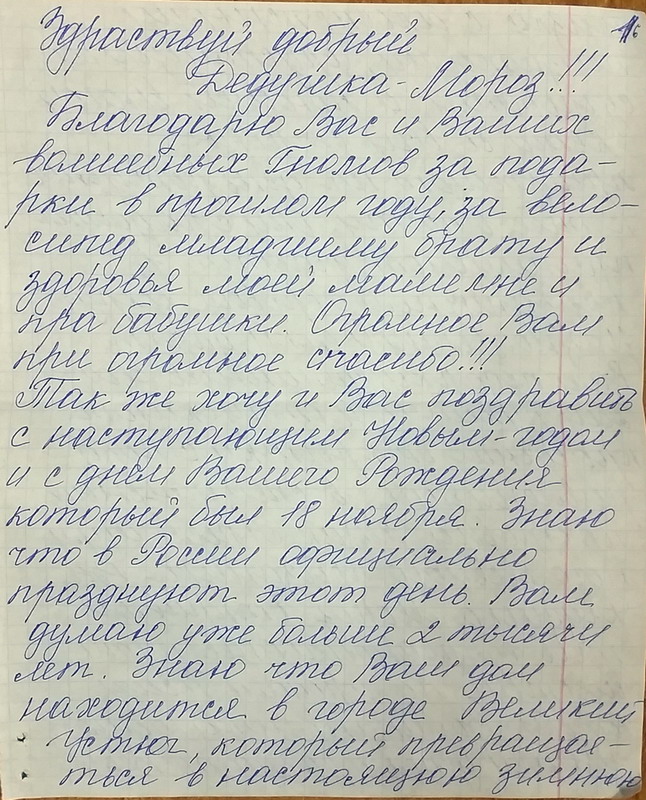 Здраствуй добрый
Дедушка-Мороз!!!
Благодарю Вас и Ваших
волшебных Гномов за пода-
рки в прошлом году, за вело-
сипед младшему брату и
здоровья моей мамелне и
пра бабушки. Огромное Вам
при огромное спасибо!!!
Так же хочу и Вас поздравить
с наступающим Новым-годом
и с днем Вашего Рождения
который был 18 ноября. Знаю
что в России официально
празднуют этот день. Вам
думаю уже больше 2 тысячи
лет. Знаю что Ваш дом
находится в городе Великий
Устюг, который превращае-
ться в настоящюю зимнюю